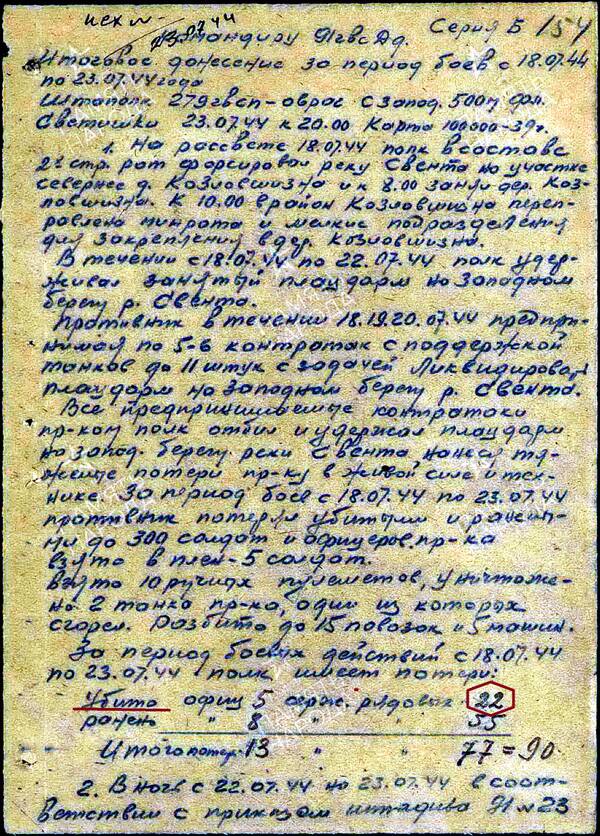 исх №
23.07.44
Командиру 91 гвсд. Серия Б 154
Итоговое донесение за период боев с 18.07.44
по 23.07.44 года
Штаполк 279 гвсп - овраг с запад. 500 м фл.
Светишки 23.07.44 к 20.00 Карта 100000-39г.
1. На рассвете 18.07.44 полк в составе
2х стр. рот форсировал реку Свента на участке
севернее д. Козловщизна и к 8.00 занял дер. Коз-
ловшизна. К 10.00 в район Козловшизна переп-
равлена минрота и мелкие подразделения
для закрепления в дер. Козловшизна.
В течении с 18.07.44 по 22.07.44 полк удер-
живал занятый плацдарм на западном
берегу р. Свента.
Противник в течении 18.19.20.07.44 предпри-
нимал по 5-6 контратак с поддержкой
танков до 11 штук с задачей ликвидировать
плацдарм на западном берегу р. Свента.
Все предпринимаемые контратаки
пр-ком полк отбил и удержал плацдарм
на запад. берегу реки Свента нанеся тя-
желые потери пр-ку в живой силе и тех-
нике. За период боев с 18.07.44 по 23.07.44
противник потерял убитыми и ранен-
ми до 300 солдат и офицеров. пр-ка
взято в плен - 5 солдат.
Взято 10 ручных пулеметов, уничтоже-
но 2 танка пр-ка, один из которых
сгорел. Разбито до 15 повозок и 5 машин.
За период боевых действий с 18.07.44
по 23.07.44 полк имеет потери:
Убито офиц 5 серж. рядовых 22
ранено " 8 " " 55
Итого потер. 13 " " 77 = 90
2. В ночь с 22.07.44 на 23.07.44 в соот-
ветствии с приказом штадива 91 № 23